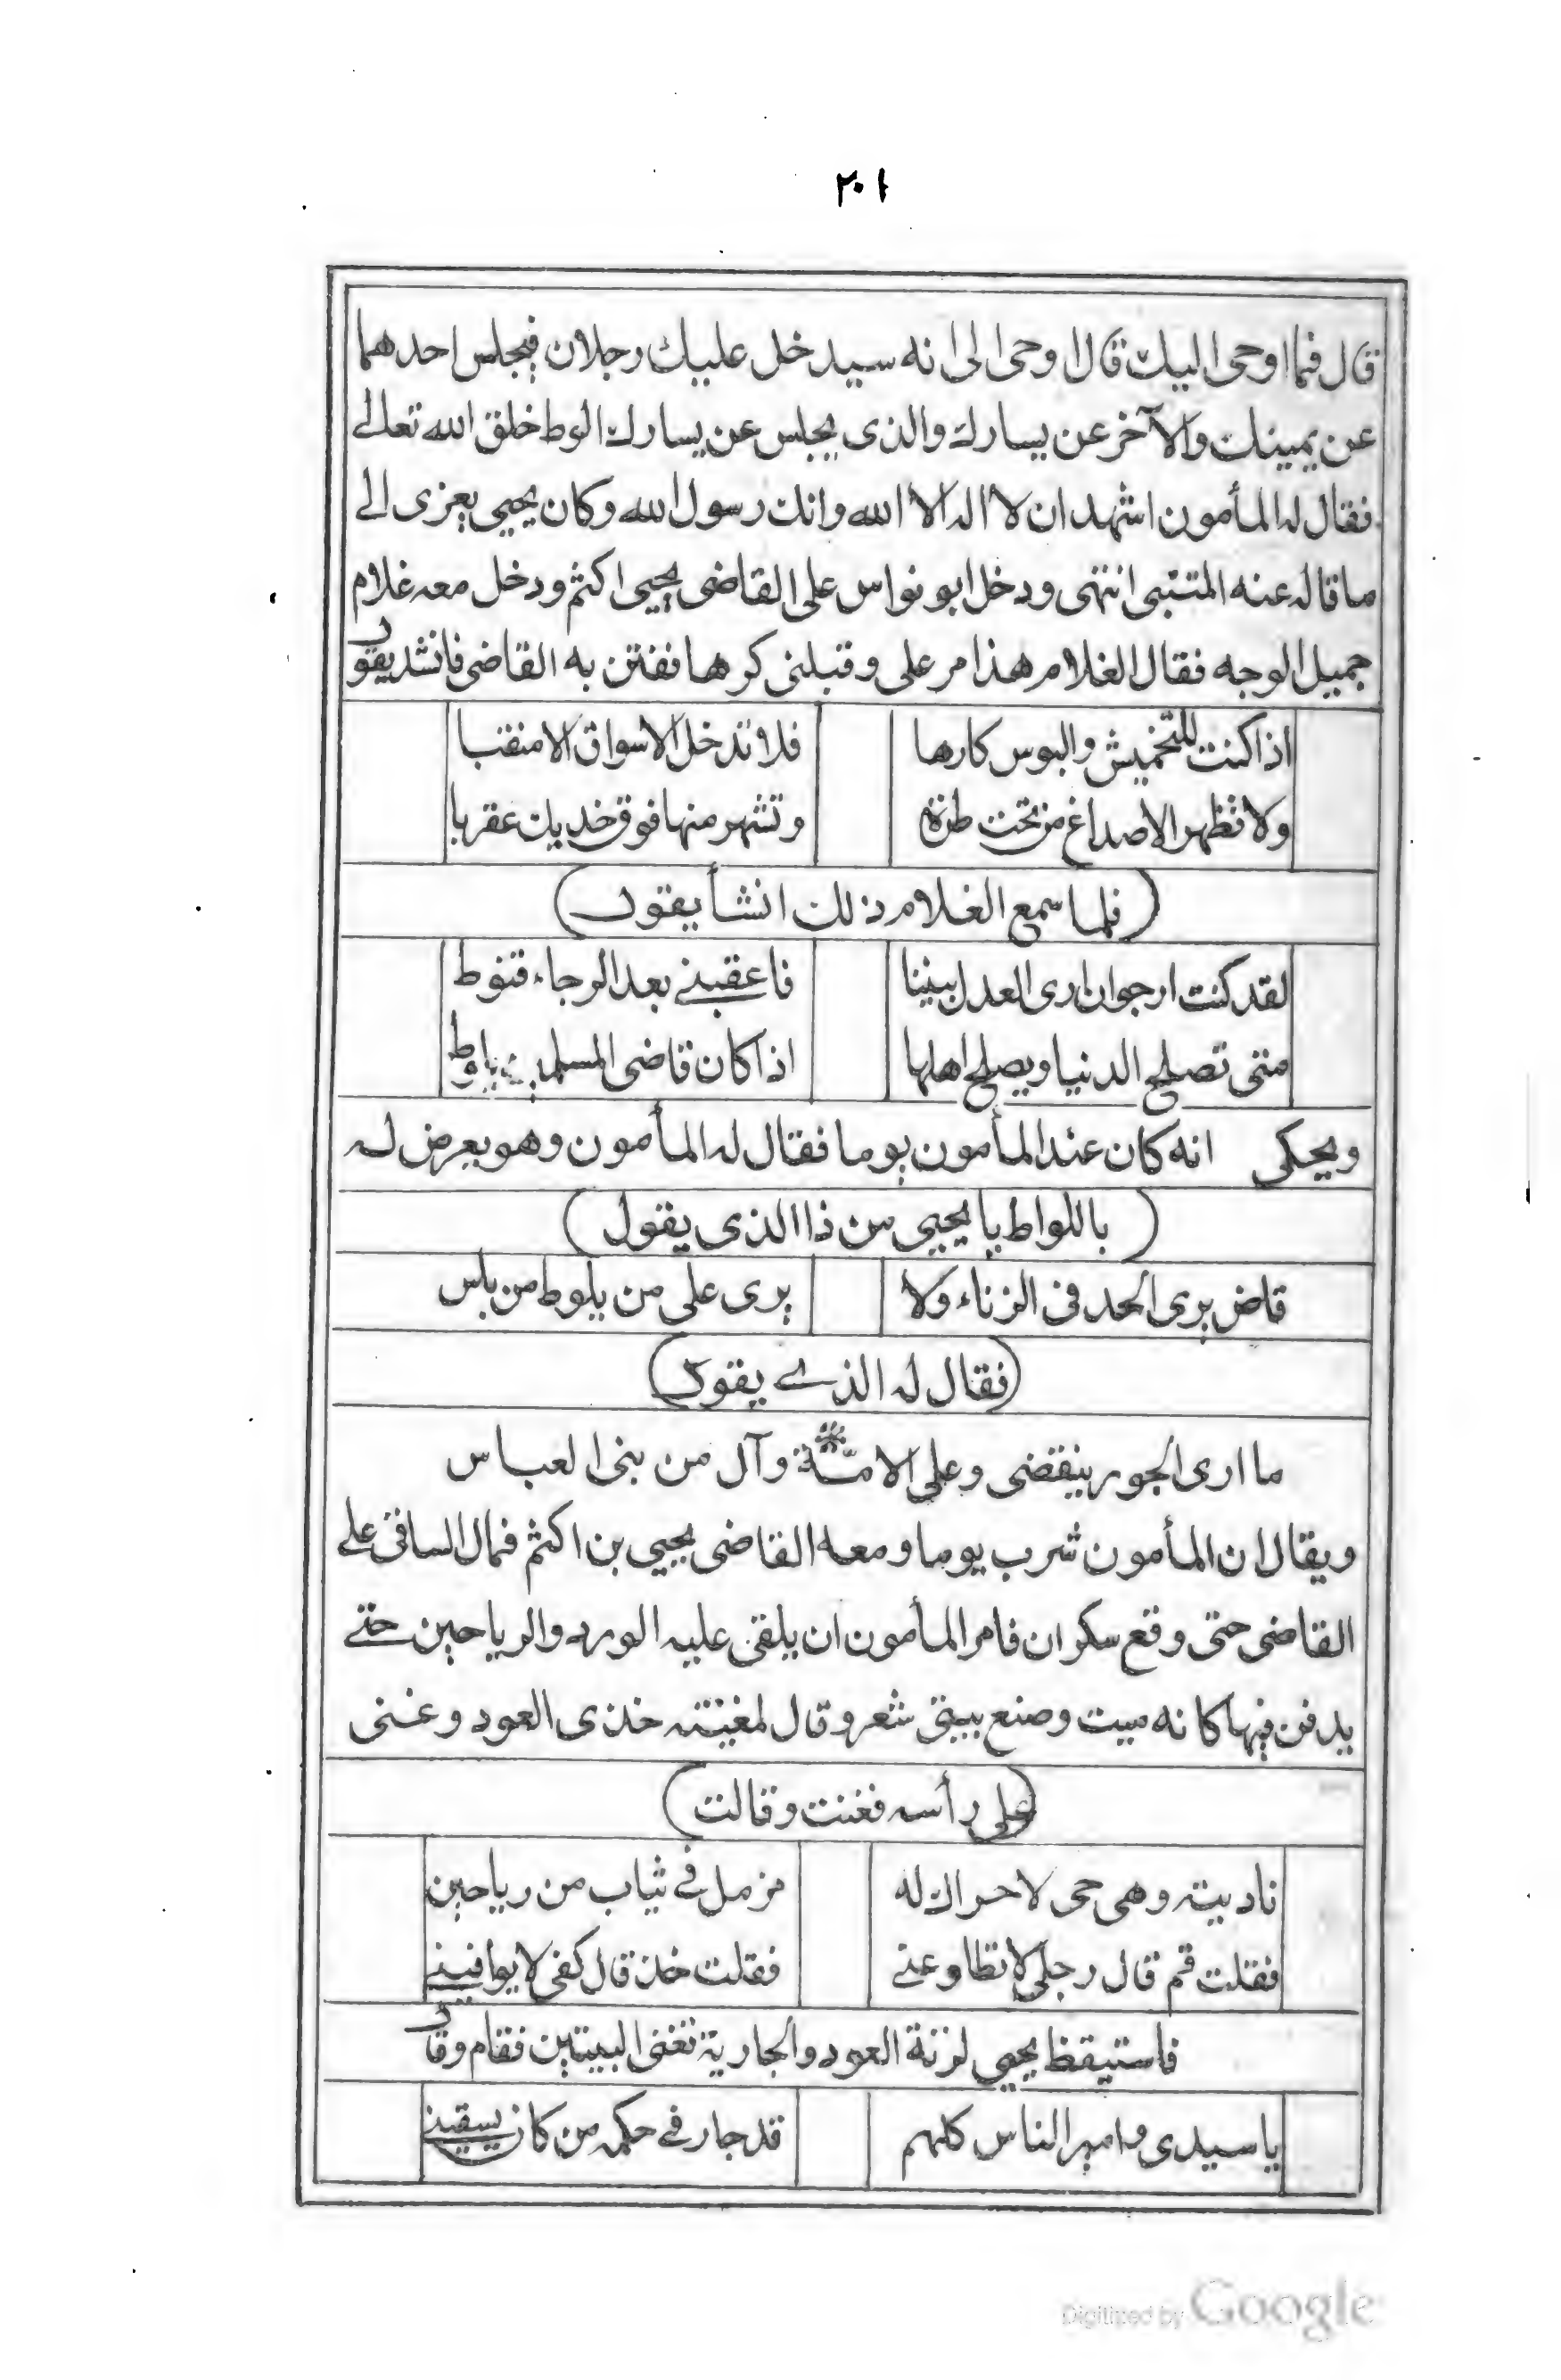 ٢٠١
قال فما اوحى اليك قال اوحى الى انه سيدخل عليك رجلان فيجلس احدهما
عن يمينك والآخر عن يسارك والذى يجلس عن يسارك الوط خلق الله تعالى
فقال له المأمون اشهد ان لا اله الا الله وانك رسول الله وكان يحيى يعزى الى
ما قاله عنه المتنبى انتهى ودخل ابو نواس على القاضى يحيى اكثم ودخل معه غلام
جميل الوجه فقال الغلام هذا مر على وقبلنى كرها ففتن به القاضى فانشد يقول
اذا كنت للتخميش والبوس كارها فلا تدخل الاسواق الا منقبا
ولا تظهر الاصداغ من تحت طرة وتشهر منها فوق خديك عقربا
(فلما سمع الغلام ذلك انشأ يقول)
لقد كنت ارجو ان ارى العدل بيننا فاعقبنى بعد الرجاء قنوط
متى تصلح الدنيا ويصلح اهلها اذا كان قاضى المسلمين يلوط
ويحكى انه كان عند المأمون يوما فقال له المأمون وهو يعرض له
(باللواط يا يحيى من ذا الذى يقول)
قاض يرى الحد فى الزناء ولا يرى على من يلوط من باس
(فقال له الذى يقول)
ما ارى الجور ينقضى وعلى الامة وآل من بنى العباس
ويقال ان المأمون شرب يوما ومعه القاضى يحيى بن اكثم فمال الساقى على
القاضى حتى وقع سكران فامر المأمون ان يلقى عليه الورد والرياحين حتى
يدفن فيها كانه ميت وصنع بيتى شعر وقال لمغنيته خذى العود وغنى
(على رأسه فغنت وقالت)
ناديته وهى حى لا حراك له مزمل فى ثياب من رياحين
فقلت قم قال رجلى لا تطاوعنى فقلت خذ قال كفى لا يوافينى
فاستيقظ يحيى لرنة العود والجارية تغنى البيتين فقام وقال
يا سيدى وامير الناس كلهم قد جار فى حكمه من كان يسقينى
Digitized by Google